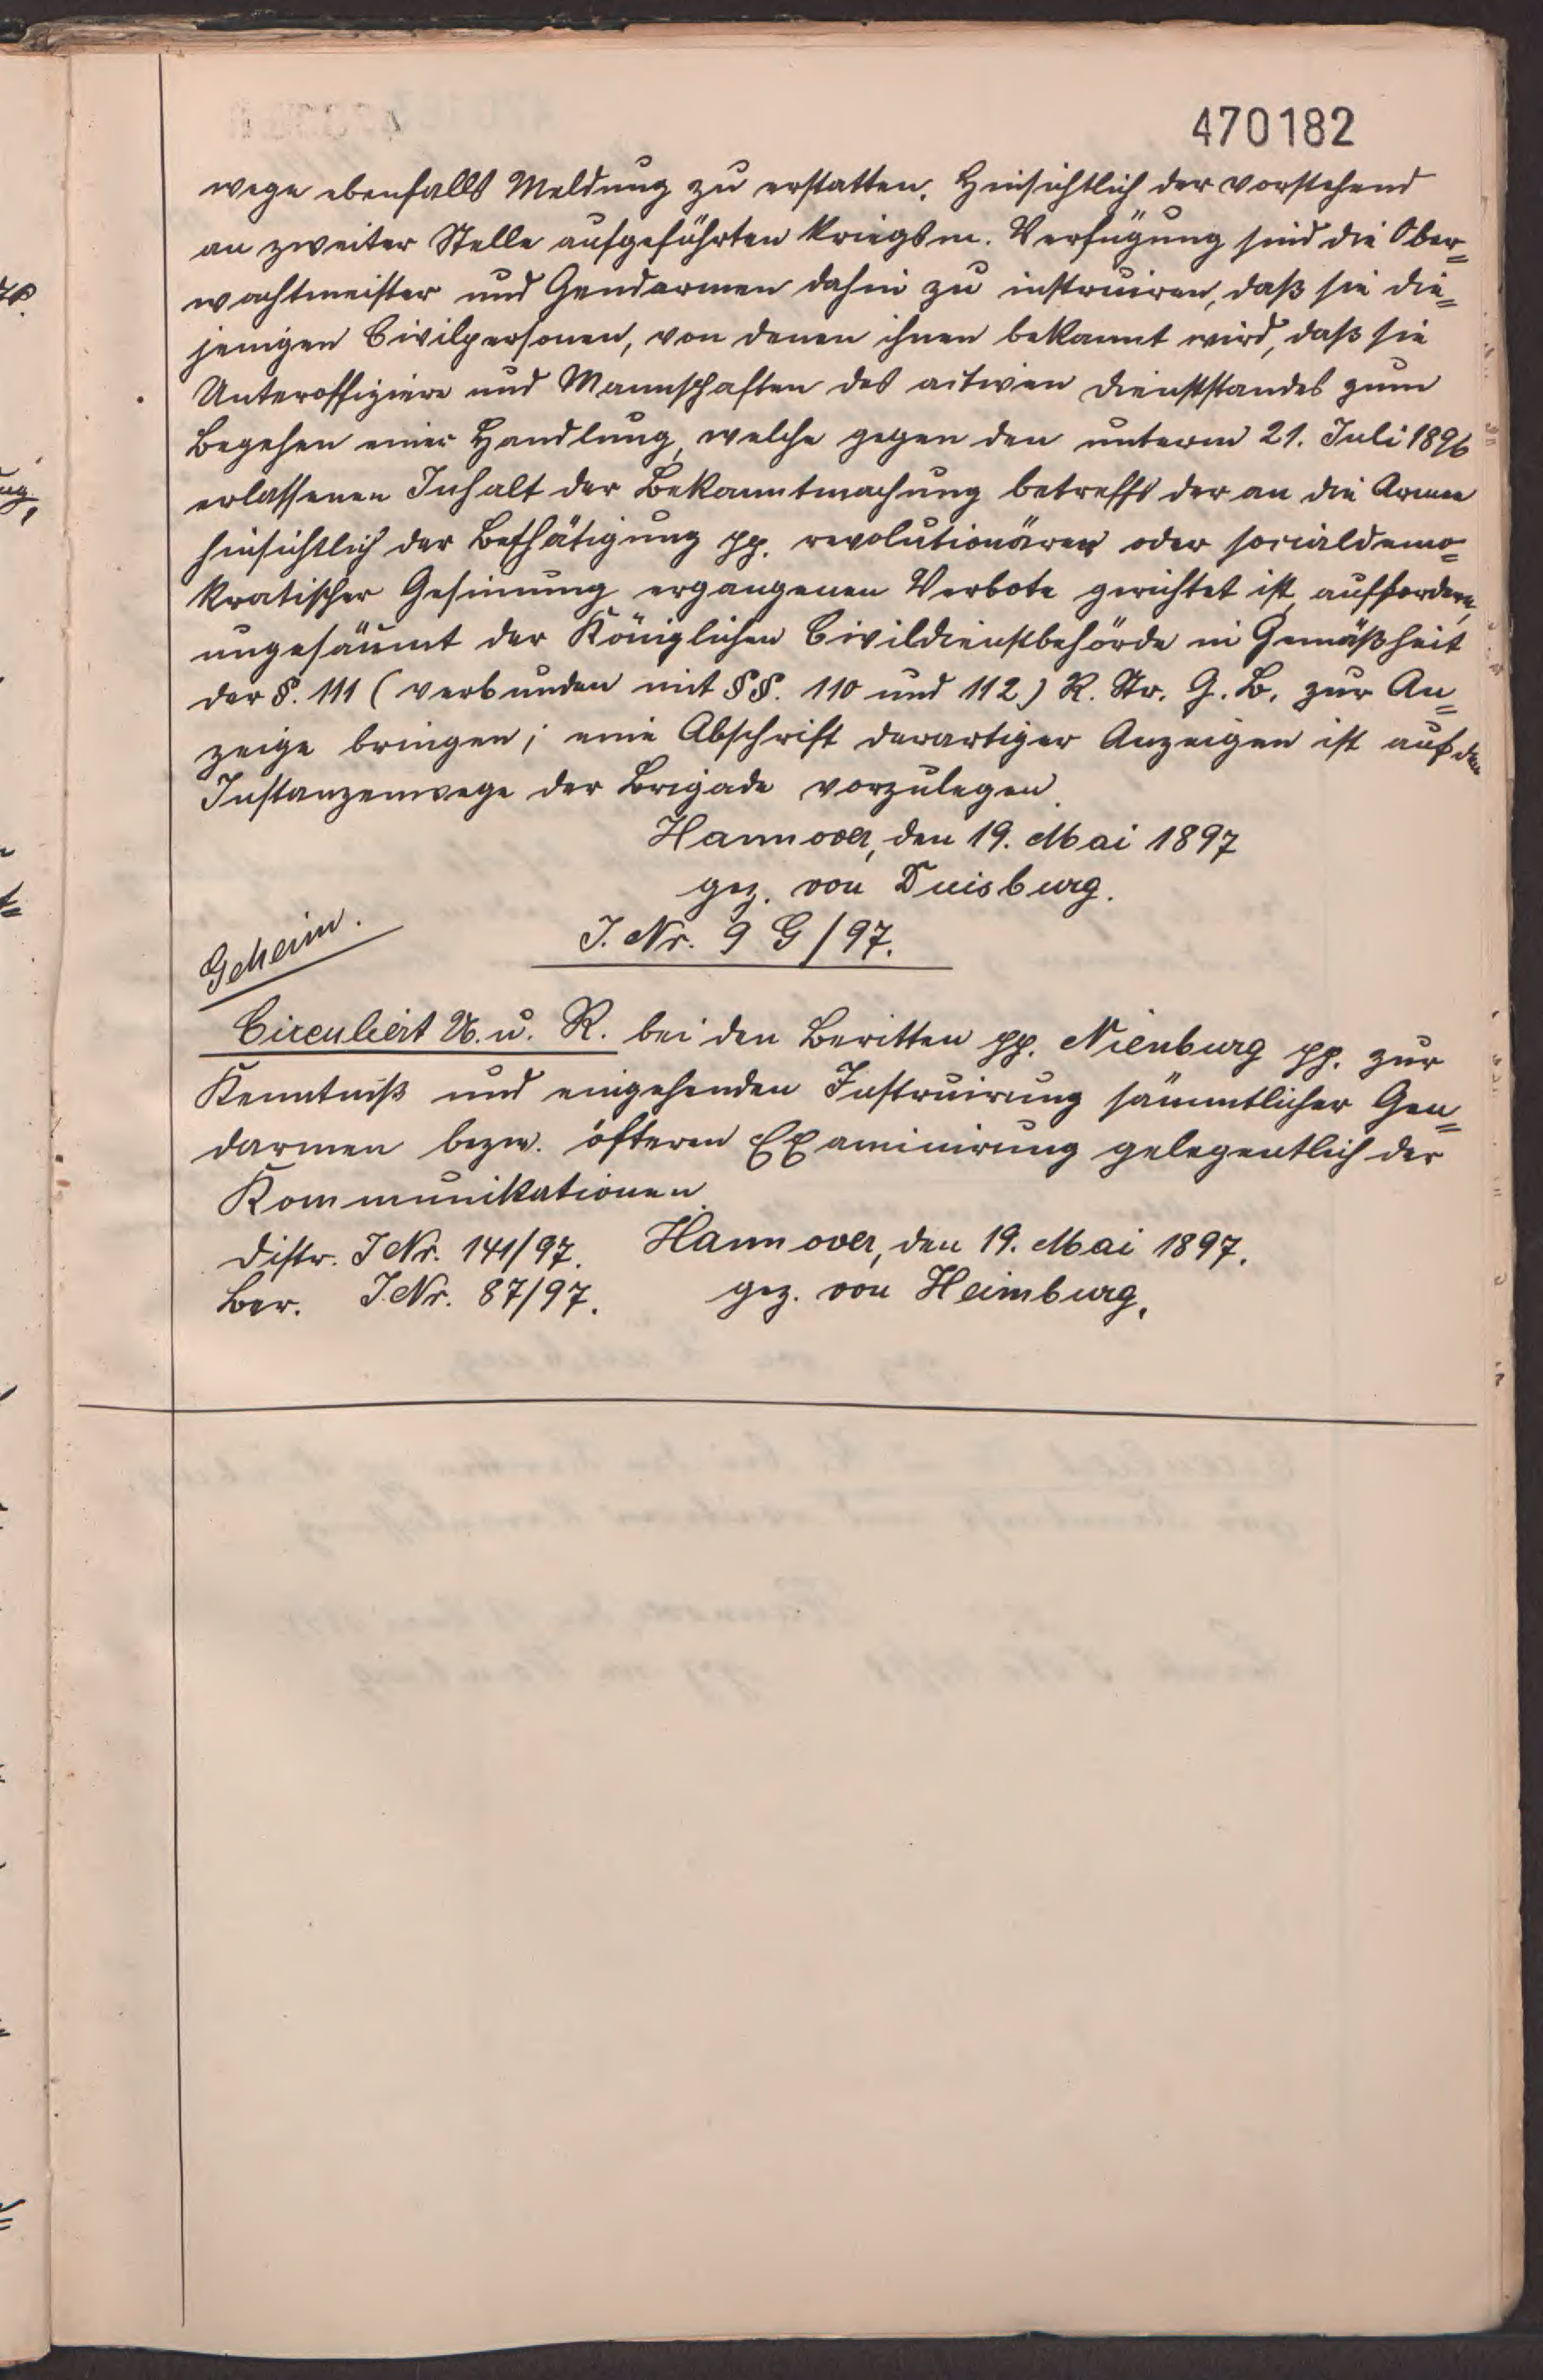 470182
wege ebenfalls Meldung zu erstatten. Hinsichtlich der vorstehend
an zweiter Stelle aufgeführten kriegsm. Verfügung sind die Ober=
wachtmeister und Gendarmen dahin zu instruiren, daß sie die=
jenigen Civilpersonen, von denen ihnen bekannt wird, daß sie
Unteroffiziere und Mannschaften des activen Dienststandes zum
Begehen einer Handlung, welche gegen den unterm 21. Juli 1896
erlassenen Inhalt der Bekanntmachung betreffs der an die Armee
hinsichtlich der Bethätigung pp. revolutionärer oder socialdemo=
kratischer Gesinnung ergangenen Verbote gerichtet ist, auffordern,
ungesäumt der Königlichen Civildienstbehörde in Gemäßheit
der §. 111 (verbunden mit §§. 110 und 112) R. Str. G. B. zur An=
zeige bringen; eine Abschrift derartiger Anzeigen ist auf dem
Instanzenwege der Brigade vorzulegen.
Hannover, den 19. Mai 1897
gez. von Duisburg.
Geheim.
J. Nr. 9 G/97.
Circuliert U. u. R. bei den Beritten pp. Nienburg pp. zur
Kenntniß und eingehenden Instruirung sämmtlicher Gen=
darmen bezw. öfteren Examinirung gelegentlich der
Kommunikationen.
Distr. J Nr. 141/97. Hannover, den 19. Mai 1897.
Ber. J. Nr. 87/97. gez. von Heimburg.